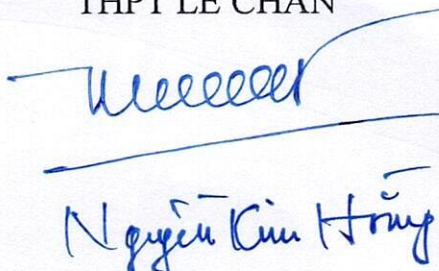 THPT LÊ CHÂN
Nguyễn Kim Hồng